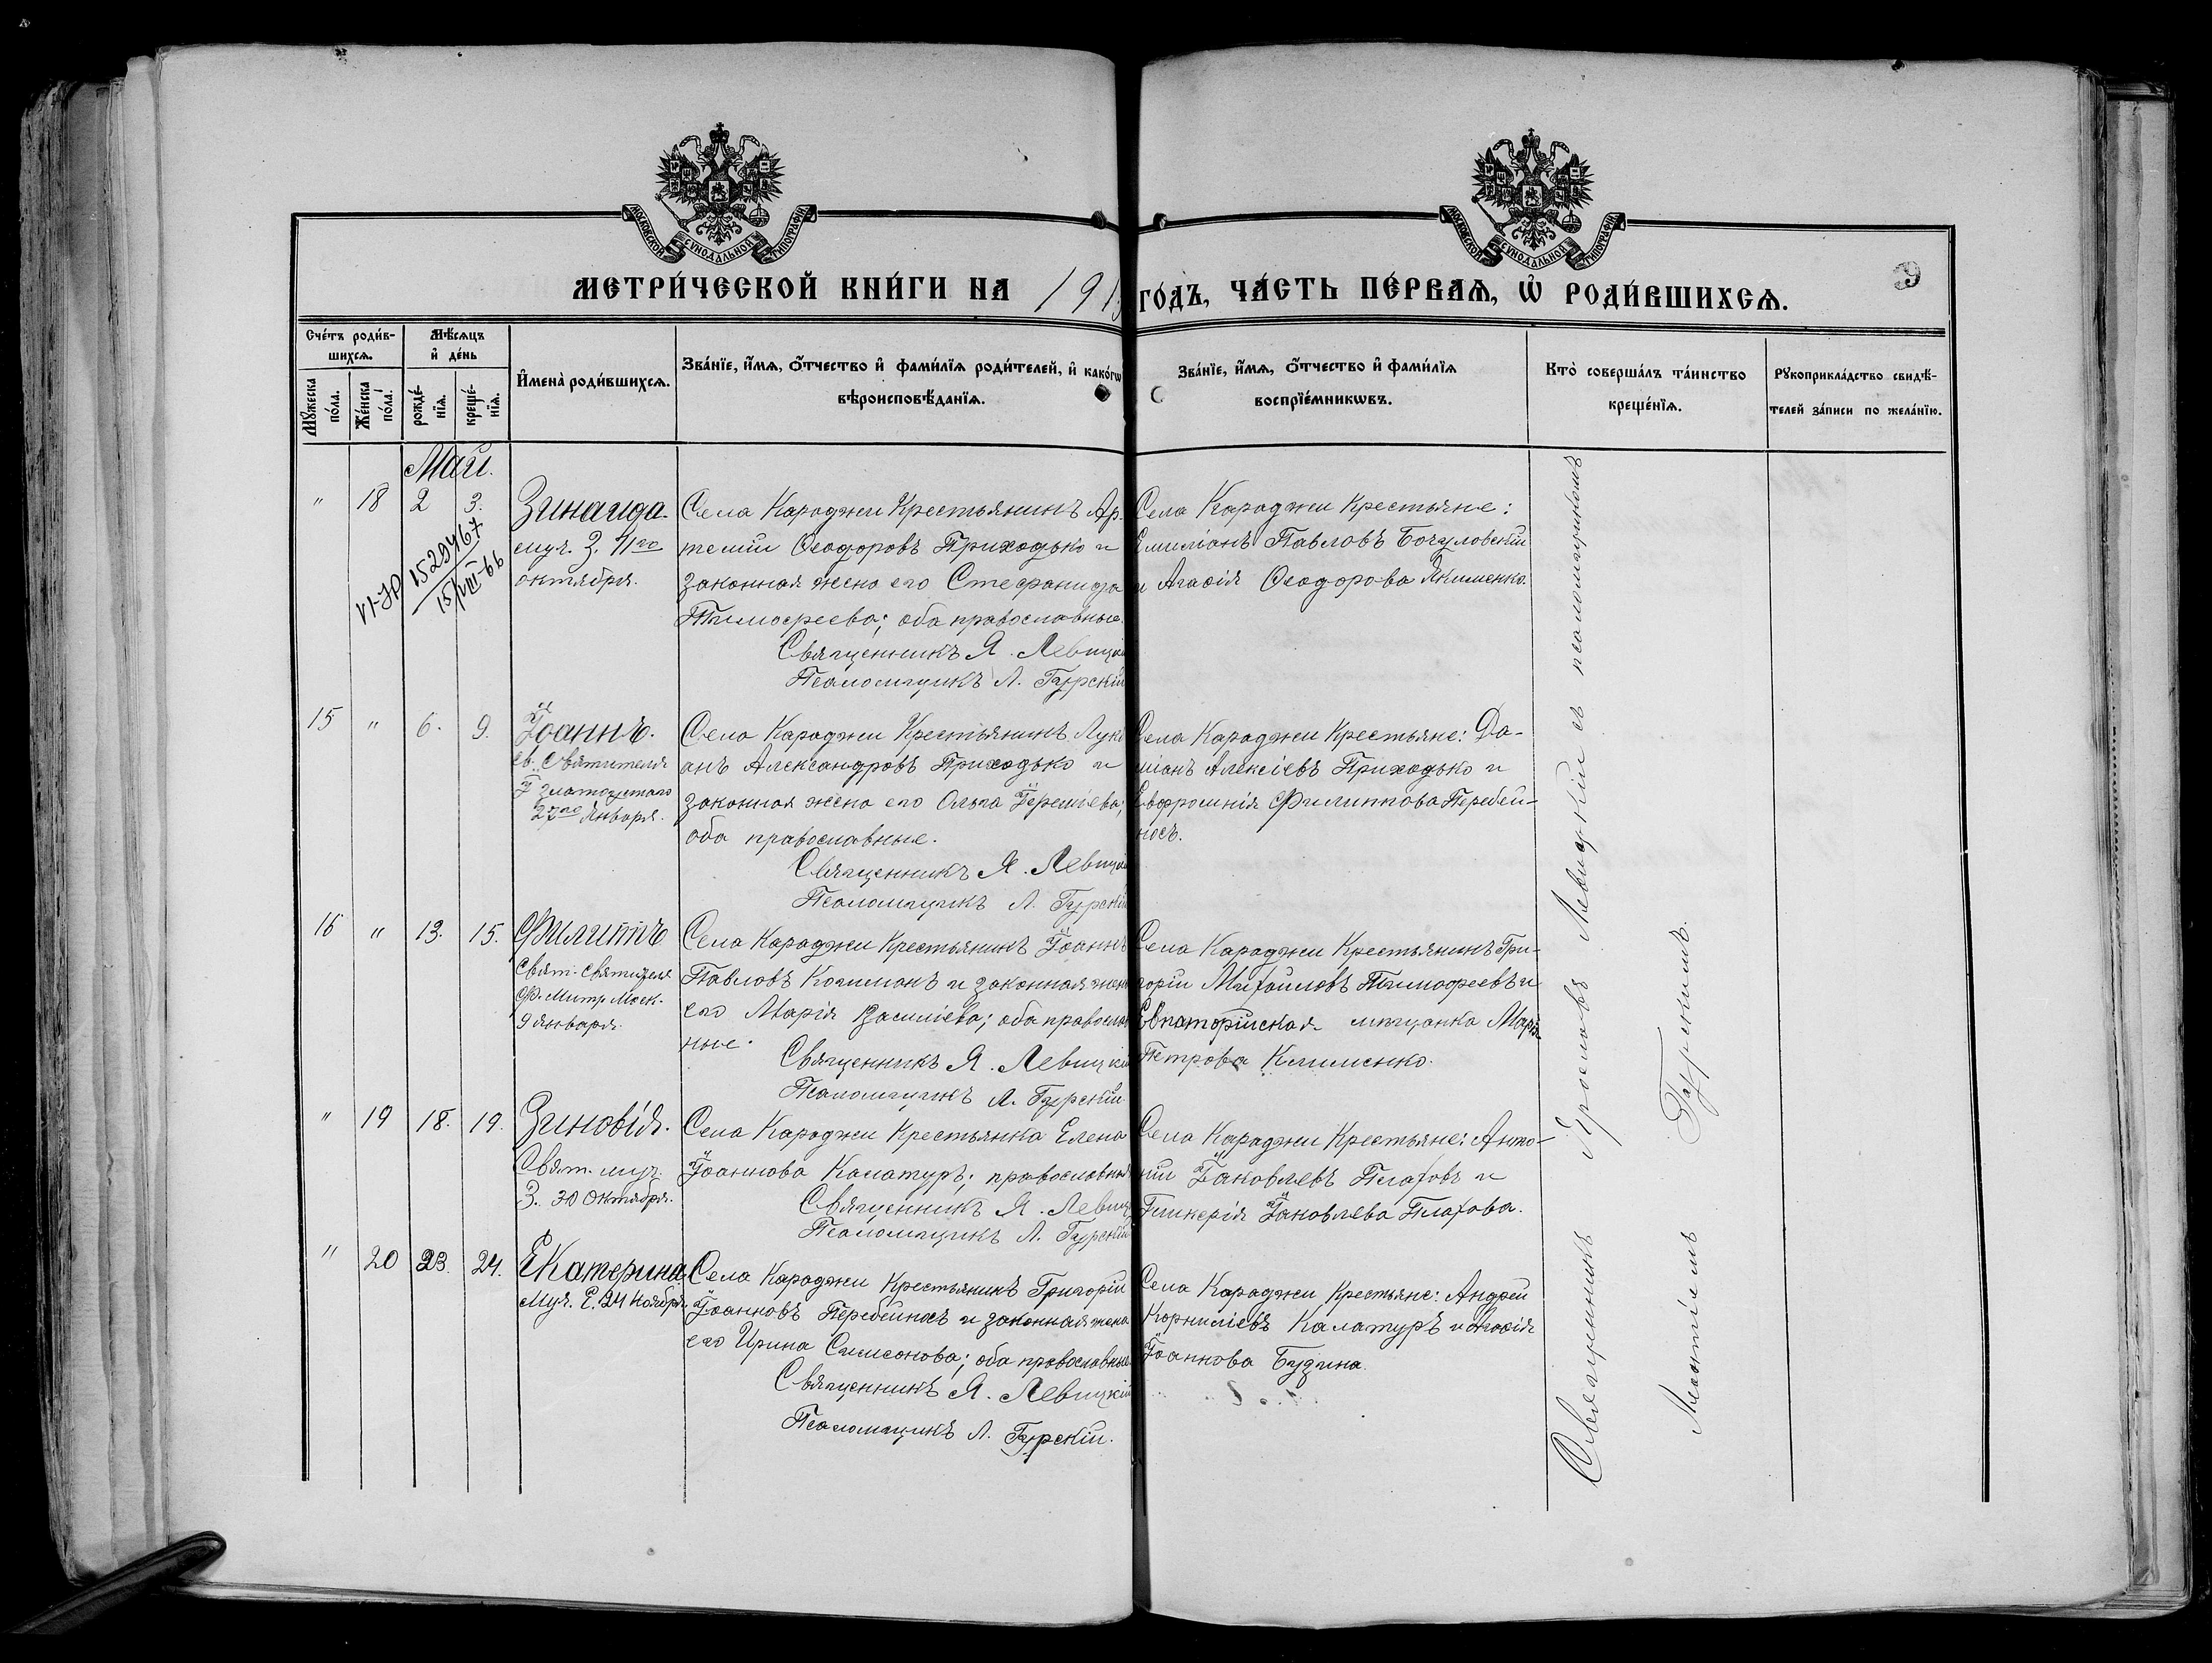 МОСКОВСКОЙ СѴНОДАЛЬНОЙ ТИПОГРАФІИ
МОСКОВСКОЙ СѴНОДАЛЬНОЙ ТИПОГРАФІИ
МЕТРИ́ЧЕСКОЙ КНИ́ГИ НА 191
ГО́ДЪ, ЧА́СТЬ ПЕ́РВАѦ, Ѡ҆ РОДИ́ВШИХСѦ.
9
Сче́тъ роди́в-
шихсѧ.
Мꙋ́жеска по́ла.
Же́нска по́ла.
Мѣ́сѧцъ
и҆ де́нь
рожде́-
нїѧ.
креще́-
нїѧ.
И҆мена̀ роди́вшихсѧ.
Зва́нїе, и҆́мѧ, ѻ҆́тчество и҆ фами́лїѧ роди́телей, и҆ како́гѡ
вѣроисповѣ́данїѧ.
Зва́нїе, и҆́мѧ, ѻ҆́тчество и҆ фами́лїѧ
воспрїе́мникѡвъ.
Кто̀ соверша́лъ та́инство
креще́нїѧ.
Рꙋкоприкла́дство свидѣ́-
телей за́писи по жела́нїю.
Май.
" 18 2 3.
VI-ЯР 1529467
15/VIII-66
Зинаида.
муч. З. 11го
октября.
Села Караджи Крестьянинъ Ар-
темій Ѳеодоровъ Приходько и
законная жена его Стефанида
Тимофеева; оба православные.
Священникъ Я. Левицкій
Псаломщикъ Л. Гурскій
Села Караджи Крестьяне:
Емиліанъ Павловъ Бочуловскій
и Агаѳія Ѳеодорова Якименко.
15 " 6. 9.
Іоаннъ.
св. Святителя
І Златоустаго
27го Января.
Села Караджи Крестьянинъ Луки
анъ Александровъ Приходько и
законная жена его Ольга Іереміева;
оба православные.
Священникъ Я. Левицкій
Псаломщикъ Л. Гурскій
Села Караджи Крестьяне: Да-
міанъ Алексіевъ Приходько и
Евфросинія Филиппова Перебей-
носъ.
16 " 13. 15.
Филиппъ
Свят. Святителя
Ф. Митр. Моск.
9 января.
Села Караджи Крестьянинъ Іоаннъ
Павловъ и законная жена
его Марія Василіева; оба православ
ные.
Священникъ Я. Левицкій
Псаломщикъ Л. Гурскій
Села Караджи Крестьянинъ Гри-
горій Михаиловъ Тимофеевъ и
Евпаторійская мѣщанка Марія
Петрова Клименко.
" 19 18. 19.
Зиновія.
Свят. муч.
З. 30 Октября.
Села Караджи Крестьянка Елена
Іоаннова Калатуръ; православная
Священникъ Я. Левицкій
Псаломщикъ Л. Гурскій
Села Караджи Крестьяне: Анто-
ній Іаковлевъ Плаховъ и
Гликерія Іаковлева Плахова.
" 20 23. 24.
Екатерина.
Муч. Е. 24 Ноября.
Села Караджи Крестьянинъ Григорій
Іоанновъ Перебейносъ и законная жена
его Ирина Симеонова; оба православные.
Священникъ Я. Левицкій
Псаломщикъ Л. Гурскій.
Села Караджи Крестьяне: Андрей
Корниліевъ Калатуръ и Агаѳія
Іоаннова Будзина.
Священникъ Ярославъ Левицкій съ псаломщикомъ
Гурскимъ.